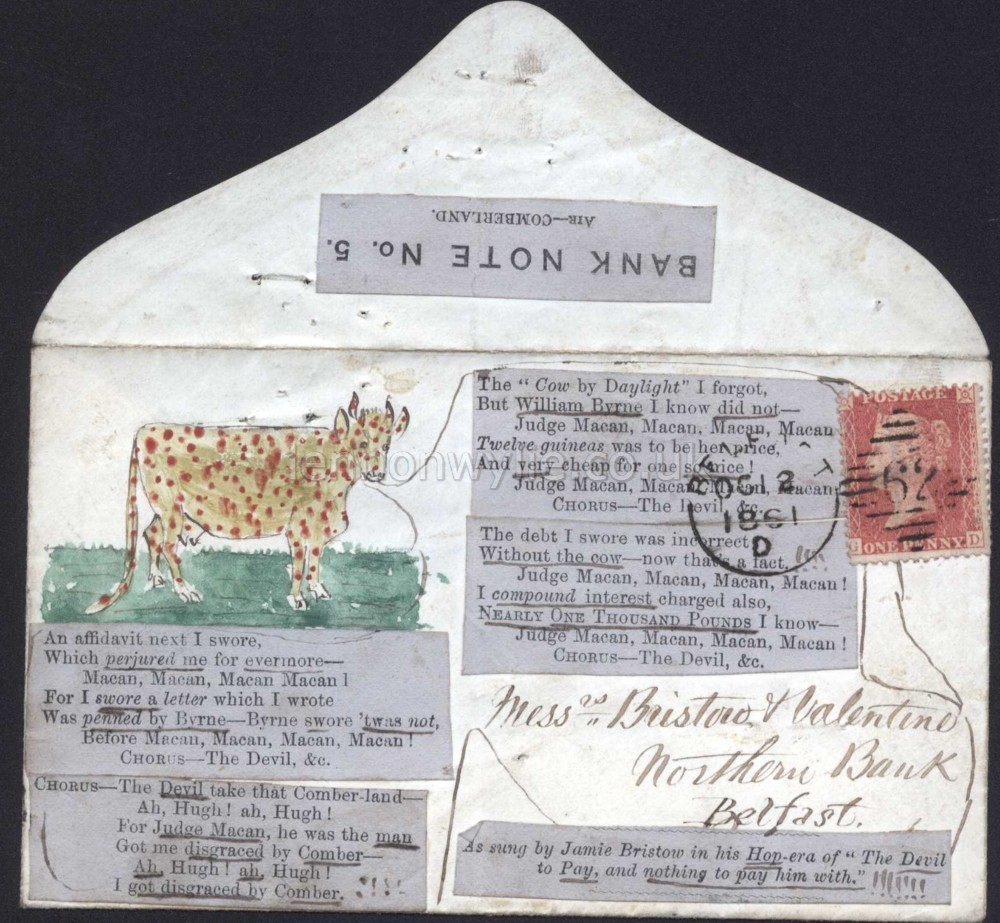 BANK NOTE No. 5.
AIR—COMBERLAND.
The "Cow by Daylight" I forgot,
But William Byrne I know did not—
Judge Macan, Macan, Macan, Macan
Twelve guineas was to be her price,
And very cheap for one so nice!
Judge Macan, Macan, Macan, Macan
CHORUS—The Devil, &c.
The debt I swore was incorrect
Without the cow—now that's a fact,
Judge Macan, Macan, Macan, Macan!
I compound interest charged also,
NEARLY ONE THOUSAND POUNDS I know—
Judge Macan, Macan, Macan, Macan!
CHORUS—The Devil, &c.
POSTAGE
62
G ONE PENNY D
BELFAST
OC 12
1861
D
An affidavit next I swore,
Which perjured me for evermore—
Macan, Macan, Macan Macan!
For I swore a letter which I wrote
Was penned by Byrne—Byrne swore 'twas not,
Before Macan, Macan, Macan, Macan!
CHORUS—The Devil, &c.
CHORUS—The Devil take that Comber-land—
Ah, Hugh! ah, Hugh!
For Judge Macan, he was the man
Got me disgraced by Comber—
Ah, Hugh! ah, Hugh!
I got disgraced by Comber. !!!!
Messrs Bristow & Valentine
Northern Bank
Belfast.
As sung by Jamie Bristow in his Hop-era of "The Devil
to Pay, and nothing to pay him with."